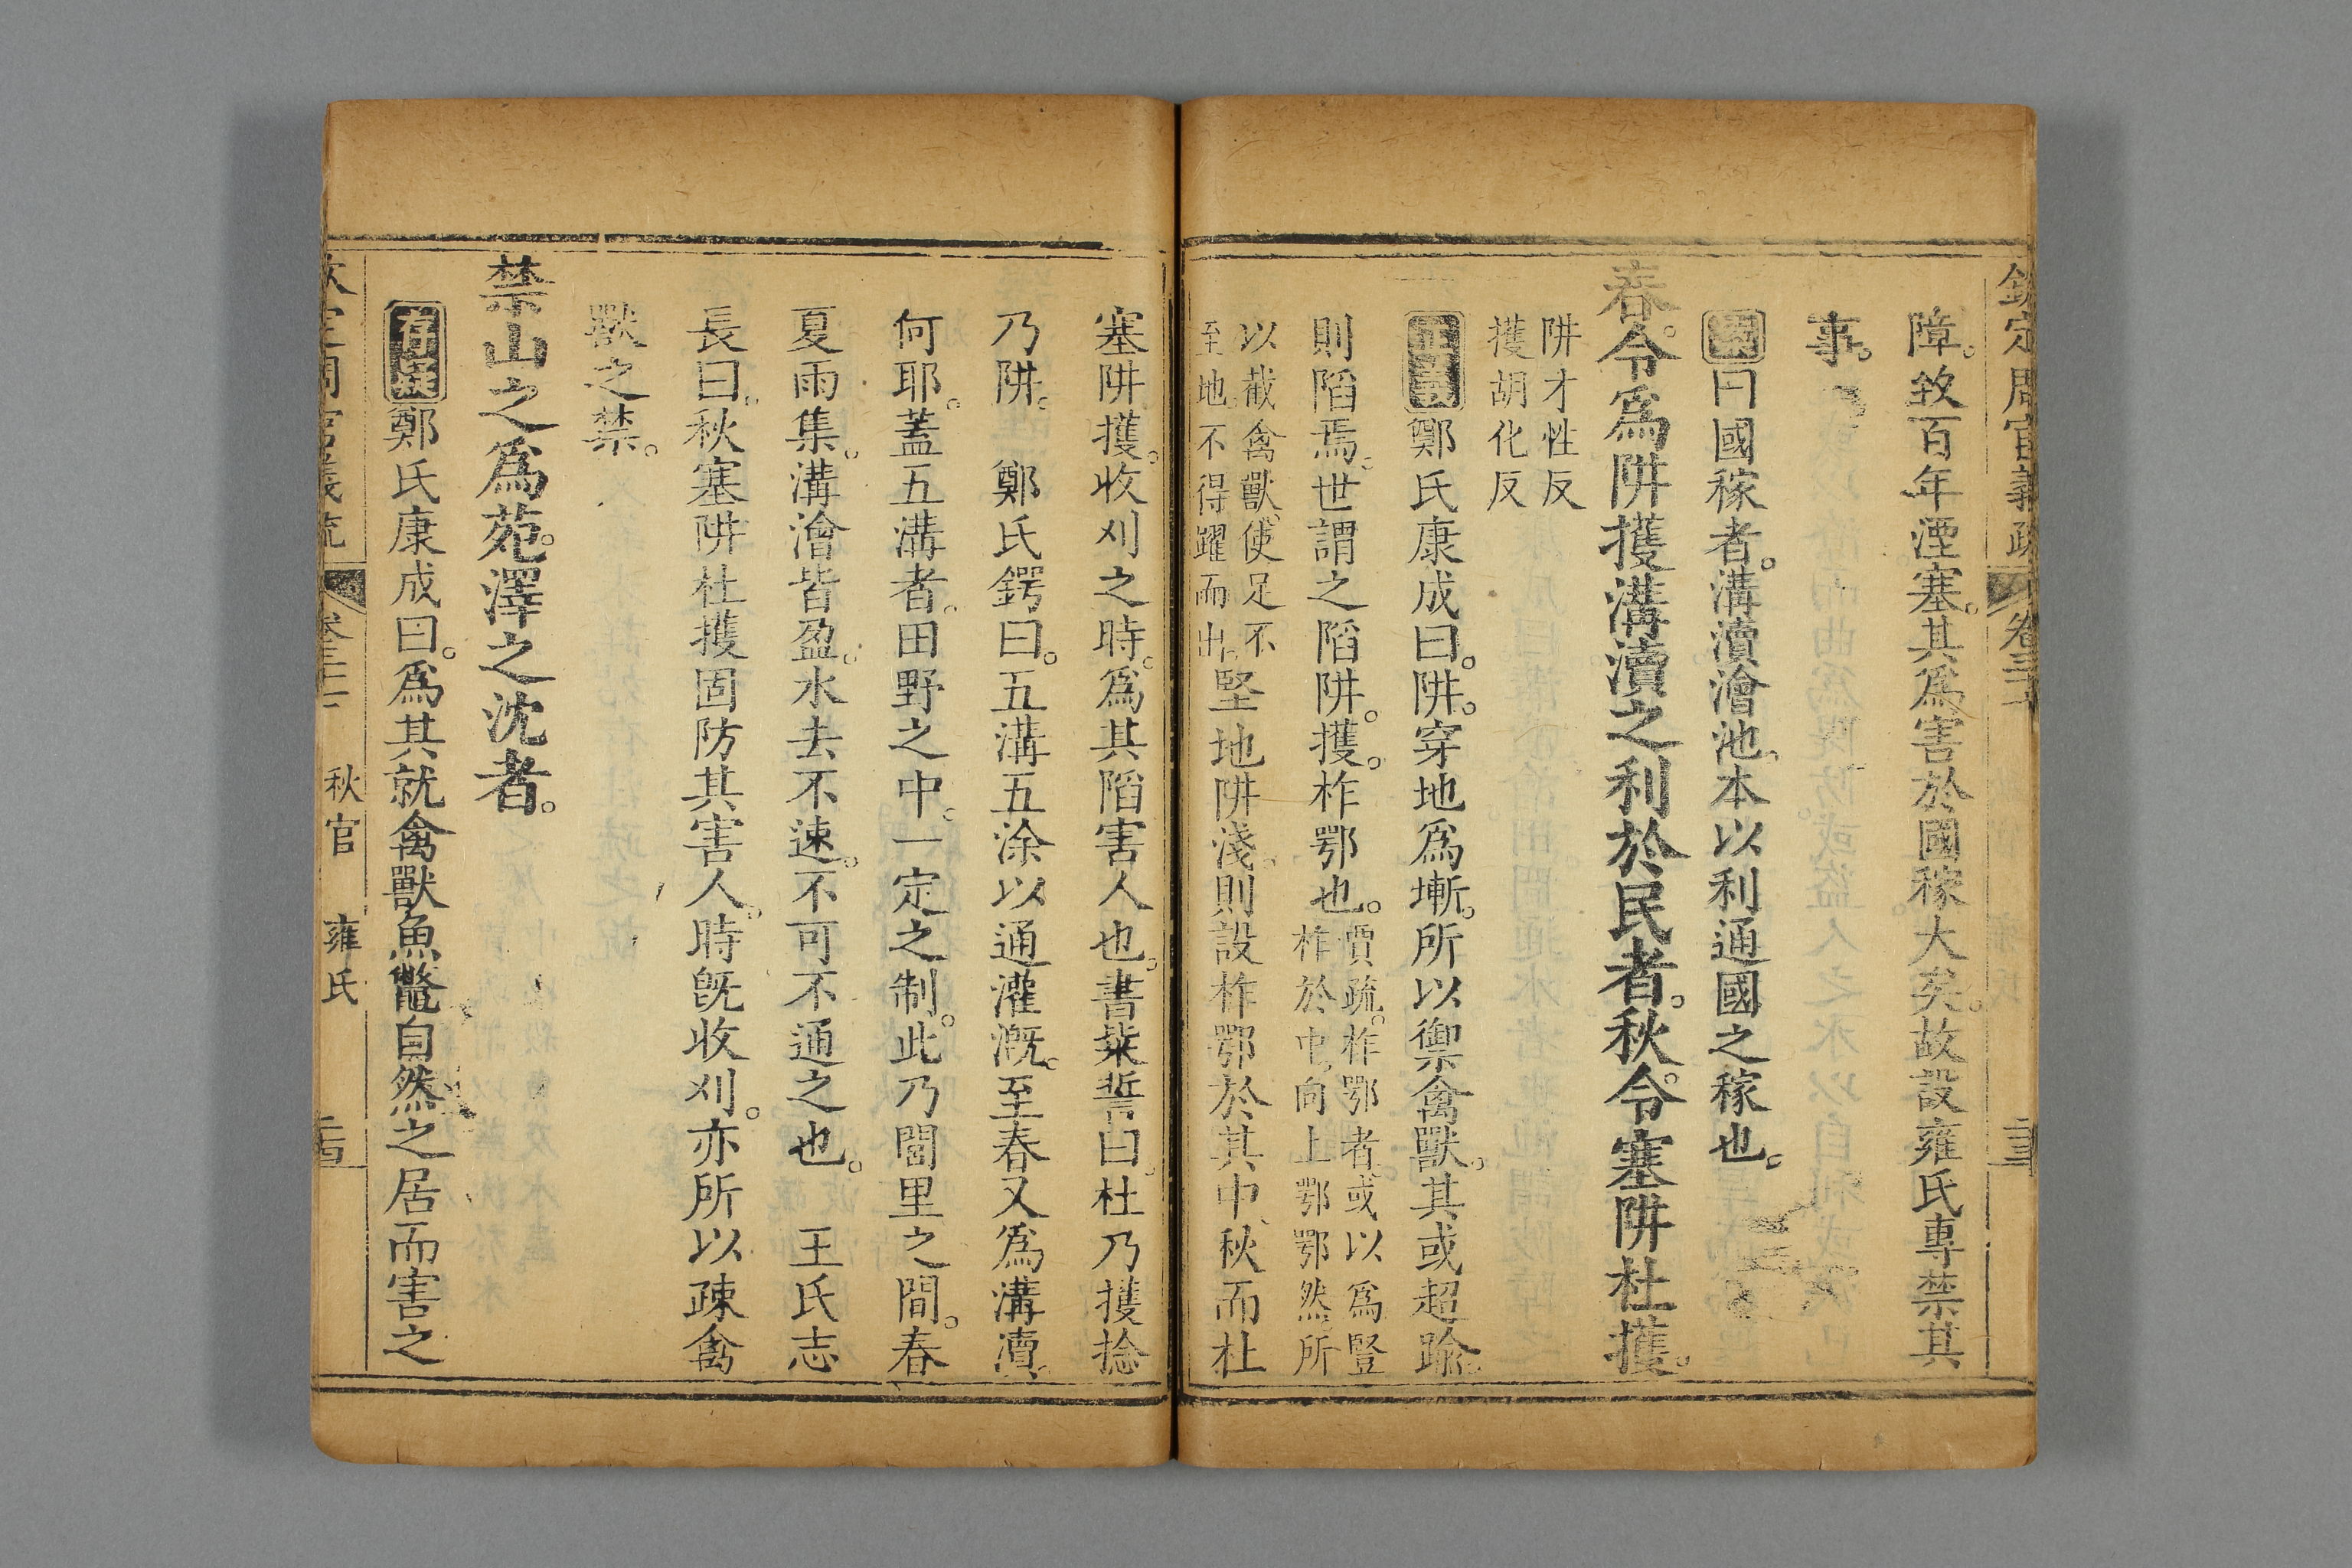 欽定周官義疏 卷三十
障。致百年湮塞。其爲害於國稼大矣。故設雍氏專禁其
事。
案曰國稼者。溝瀆澮池。本以利通國之稼也。
春令爲阱擭溝瀆之利於民者。秋令塞阱杜擭。
阱才性反
擭胡化反
正義鄭氏康成曰。阱。穿地爲塹。所以禦禽獸。其或超踰。
則陷焉。世謂之陷阱。擭。柞鄂也。
賈疏。柞鄂者。或以爲豎
柞於中。向上鄂鄂然。所
以截禽獸。使足不
至地。不得躍而出。
堅地阱淺。則設柞鄂於其中。秋而杜
塞阱擭。收刈之時。爲其陷害人也。書粊誓曰。杜乃擭捻
乃阱。 鄭氏鍔曰。五溝五涂以通灌溉。至春又爲溝瀆。
何耶。蓋五溝者。田野之中。一定之制。此乃閭里之間。春
夏雨集。溝澮皆盈。水去不速。不可不通之也。 王氏志
長曰。秋塞阱杜擭固防其害人。時既收刈。亦所以疎禽
獸之禁。
禁山之爲苑。澤之沈者。
存疑鄭氏康成曰。爲其就禽獸魚鼈自然之居而害之
欽定周官義疏 卷三十 秋官 雍氏